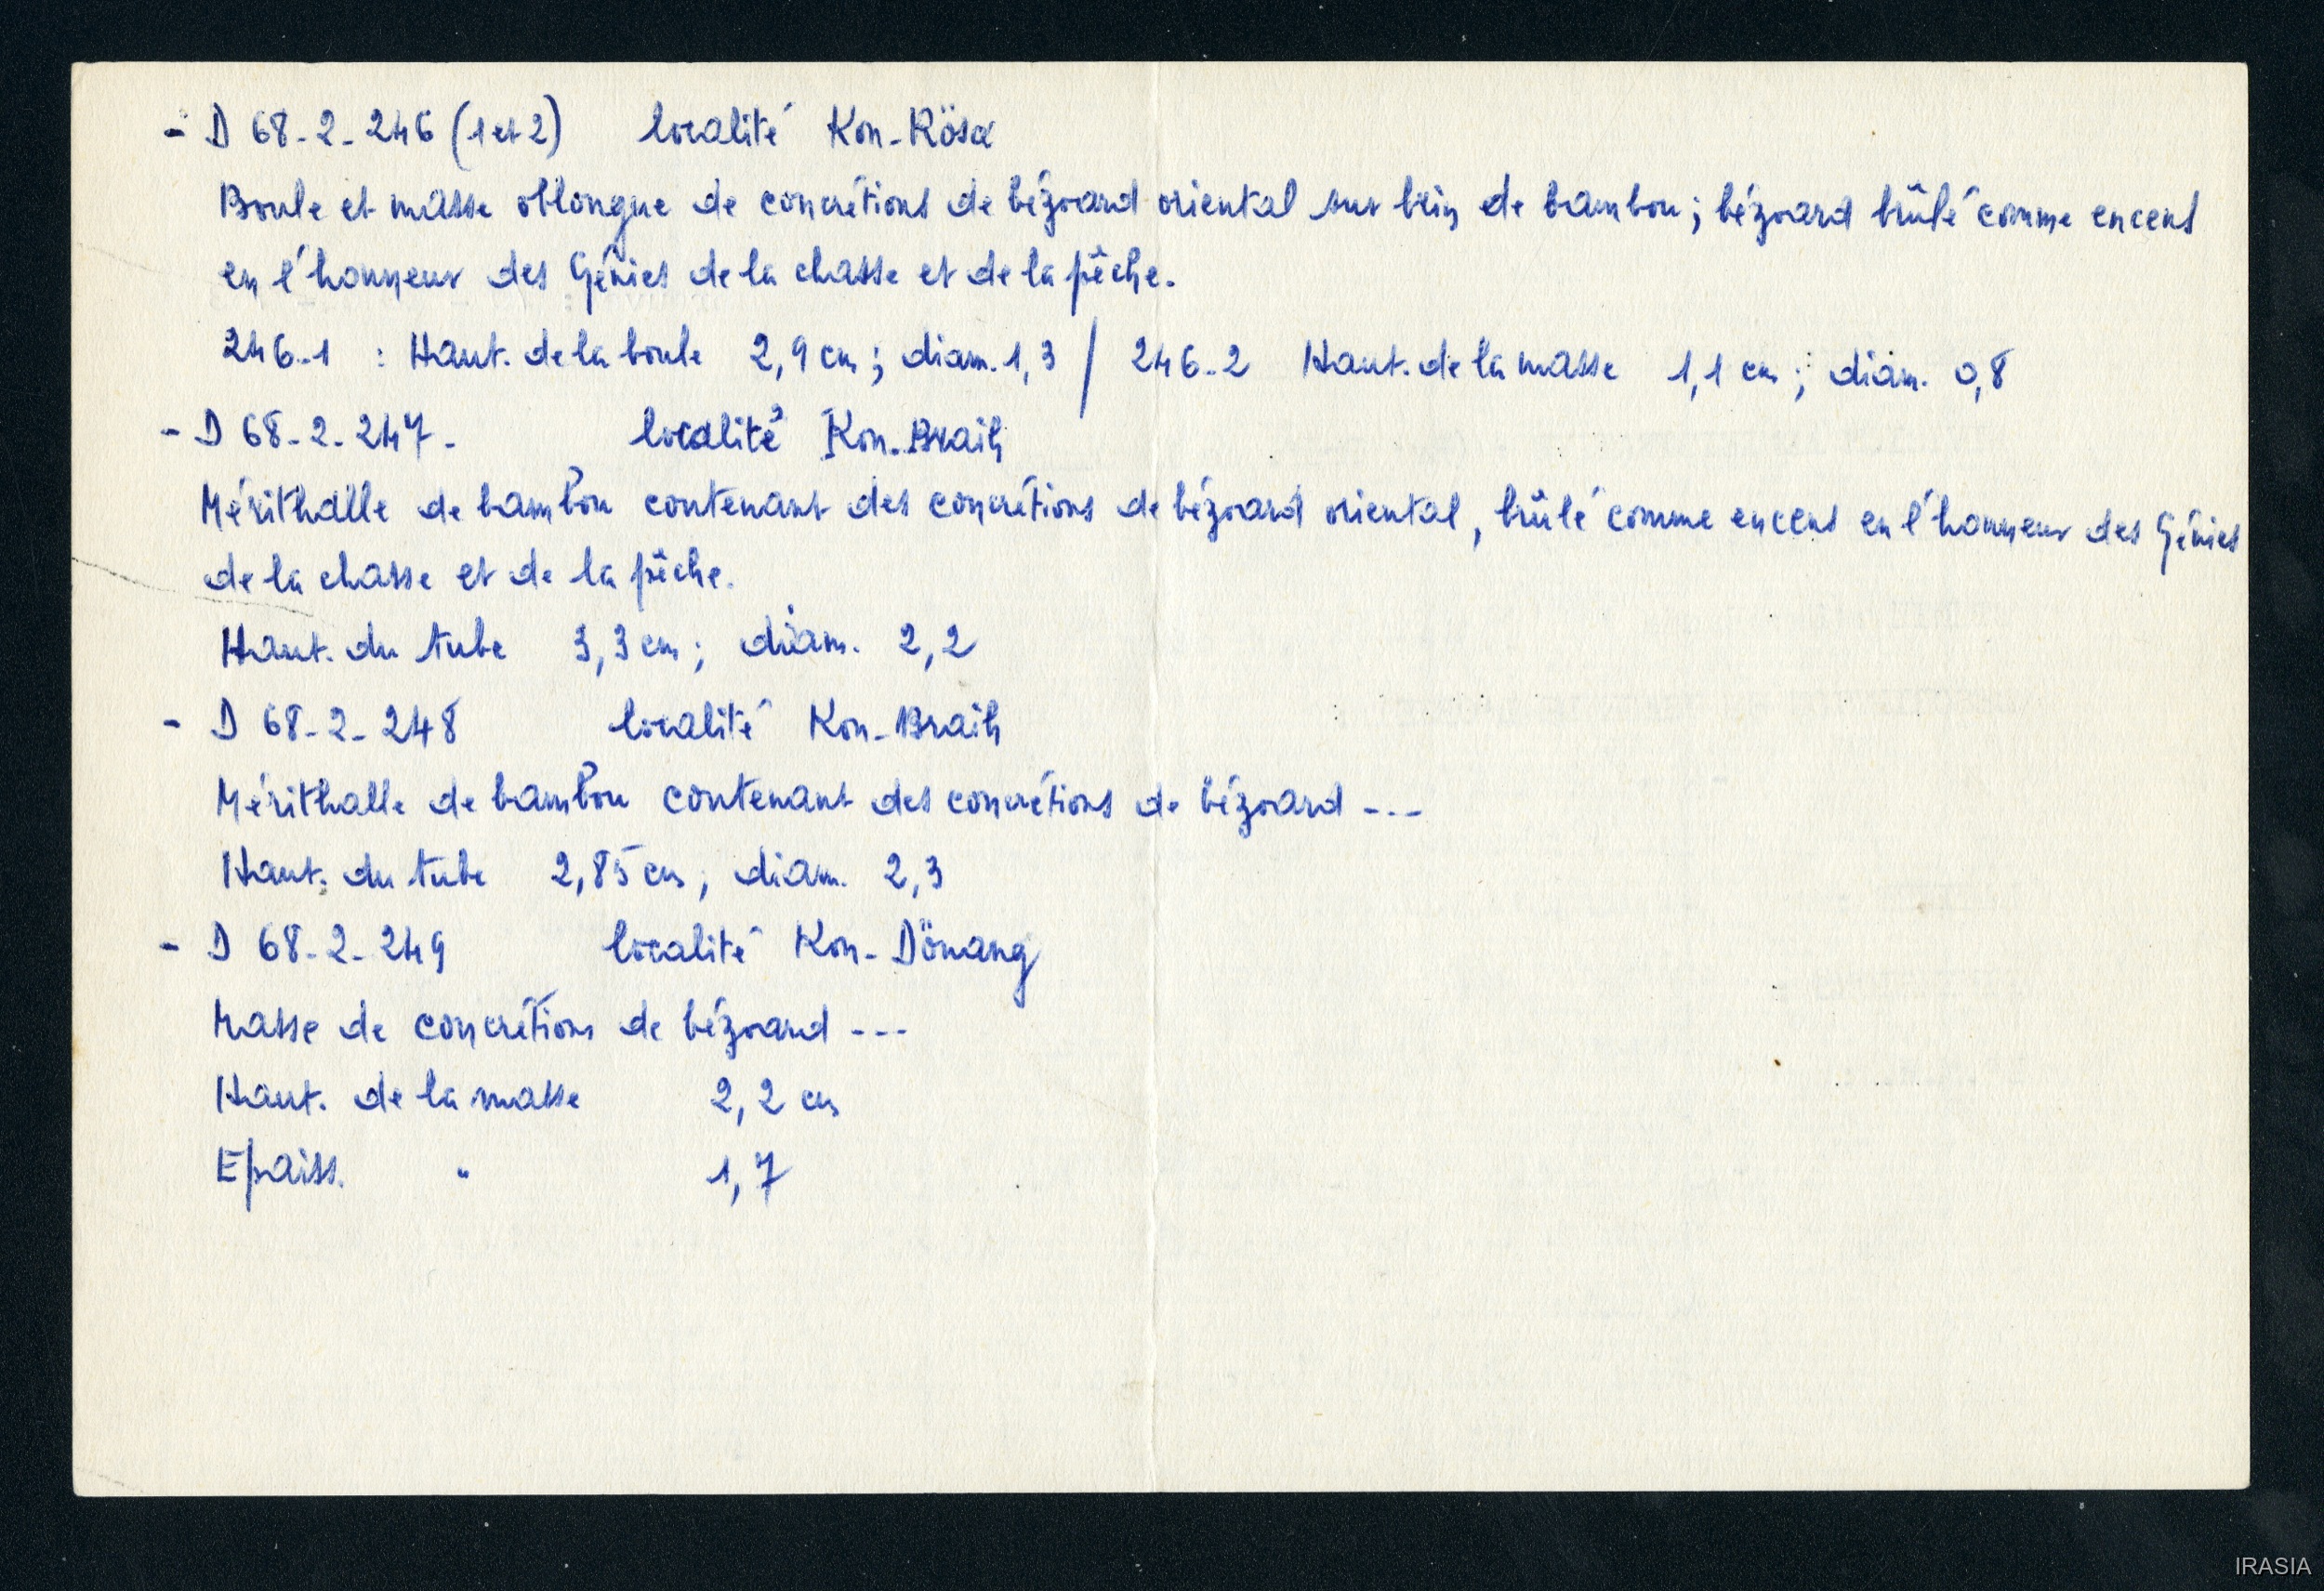 - D 68-2-246 (1 et 2) localité Kon-Rösa
Boule et masse oblongue de concrétions de bézoard oriental sur brin de bambou; bézoard brûlé comme encens
en l'honneur des Génies de la chasse et de la pêche.
246-1 : Haut. de la boule 2,9 cm; diam. 1,3 / 246-2 Haut. de la masse 1,1 cm; diam. 0,8
- D 68-2-247- localité Kon-Braih
Mérithalle de bambou contenant des concrétions de bézoard oriental, brûlé comme encens en l'honneur des Génies
de la chasse et de la pêche.
Haut. du tube 3,3 cm; diam. 2,2
- D 68-2-248 localité Kon-Braih
Mérithalle de bambou contenant des concrétions de bézoard ---
Haut. du tube 2,85 cm, diam. 2,3
- D 68-2-249 localité Kon-Dönang
Masse de concrétions de bézoard ---
Haut. de la masse 2,2 cm
Epaiss. " 1,7
IRASIA